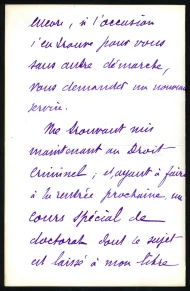 encore, si l'occasion
s'en trouve pour vous
sans autre démarche,
vous demander un nouveau
service.
Me trouvant mis
maintenant au Droit
Criminel, et ayant à faire
à la rentrée prochaine, un
cours spécial de
doctorat dont le sujet
est laissé à mon libre